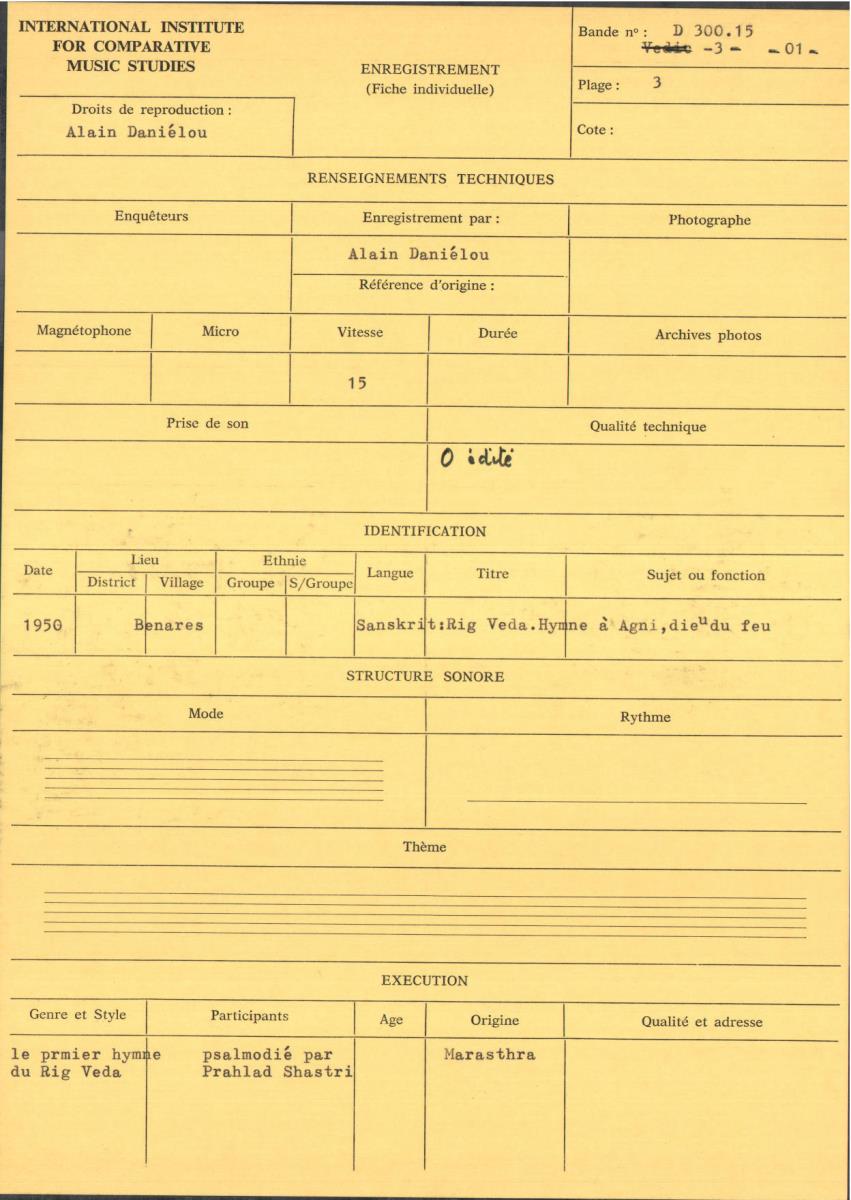 INTERNATIONAL INSTITUTE
FOR COMPARATIVE
MUSIC STUDIES
Droits de reproduction :
Alain Daniélou
ENREGISTREMENT
(Fiche individuelle)
Bande nº : D 300.15
Vedic -3 - -01-
Plage : 3
Cote :
RENSEIGNEMENTS TECHNIQUES
Enquêteurs
Enregistrement par :
Photographe
Alain Daniélou
Référence d'origine :
Magnétophone
Micro
Vitesse
Durée
Archives photos
15
Prise de son
Qualité technique
O édité
IDENTIFICATION
Date
Lieu
Ethnie
Langue
Titre
Sujet ou fonction
District
Village
Groupe
S/Groupe
1950
Benares
Sanskrit:Rig Veda.Hymne à Agni,dieu du feu
STRUCTURE SONORE
Mode
Rythme
Thème
EXECUTION
Genre et Style
Participants
Age
Origine
Qualité et adresse
le prmier hymne
du Rig Veda
psalmodié par
Prahlad Shastri
Marasthra